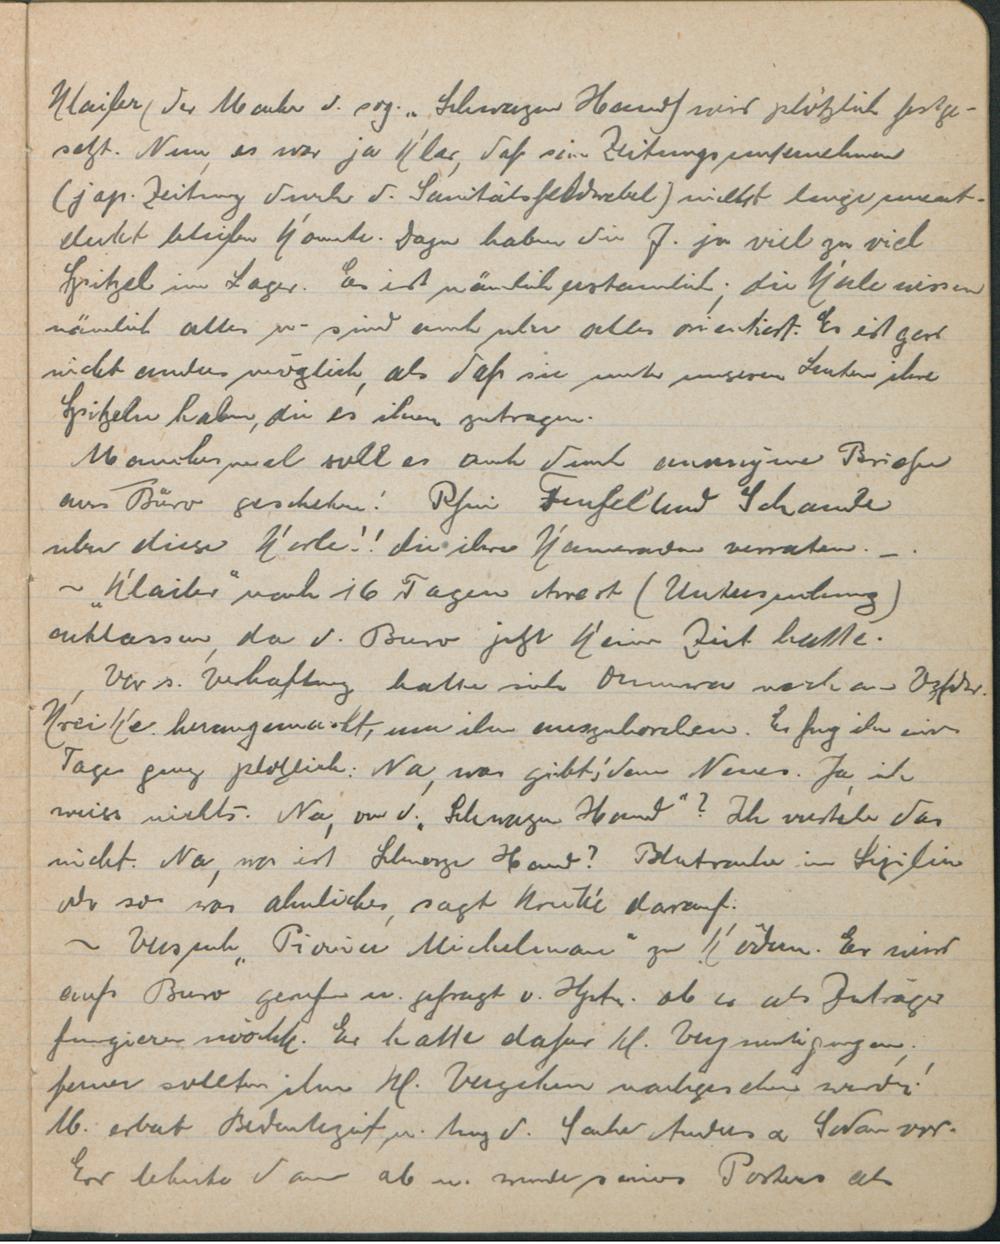 Klaiber (der Macher d. sog. „Schwarzen Hand) wird plötzlich festge-
setzt. Nun, es war ja klar, daß sein Zeitungsunternehmen
(jap. Zeitung durch d. Sanitätsfeldwebel) nicht lange unent-
deckt bleiben konnte. Dazu haben die J. ja viel zu viel
Spitzel im Lager. Es ist nämlich erstaunlich; die Kerle wissen
nämlich alles u. sind auch über alles orientiert. Es ist gar
nicht anders möglich, als daß sie unter unseren Leuten ihre
Spitzeln haben, die es ihnen zutragen.
Manchesmal soll es auch durch anonyme Briefe
ans Büro geschehen! Pfui Teufel und Schande
über diese Kerle!! die ihre Kameraden verraten. –.
~ „Klaiber" nach 16 Tagen Arrest (Untersuchung)
entlassen, da d. Buro jetzt keine Zeit hatte.
Vor s. Verhaftung hatte sich noch an Vzfdw.
Kreike herangemacht, um ihn auszuhorchen. Er frug ihn eines
Tages ganz plötzlich: Na, was gibt's denn Neues. Ja, ich
weiss nichts. Na, von d. „Schwarzen Hand"? Ich verstehe das
nicht. Na, was ist Schwarze Hand? Blutrache in Sizilien
oder so was ähnliches, sagt Kreike darauf.
~ Versuch „Pionier Michelmann" zu ködern. Er wird
aufs Buro gerufen u. gefragt v. ob er als Zuträger
fungieren möchte. Er hätte dafür kl. Vergünstigungen,
ferner sollten ihm kl. Vergehen nachgesehen werden!
M. erbat Bedenkzeit u. trug d. Sache Anders a vor.
Er lehnte dann ab u. wurde seines Postens als